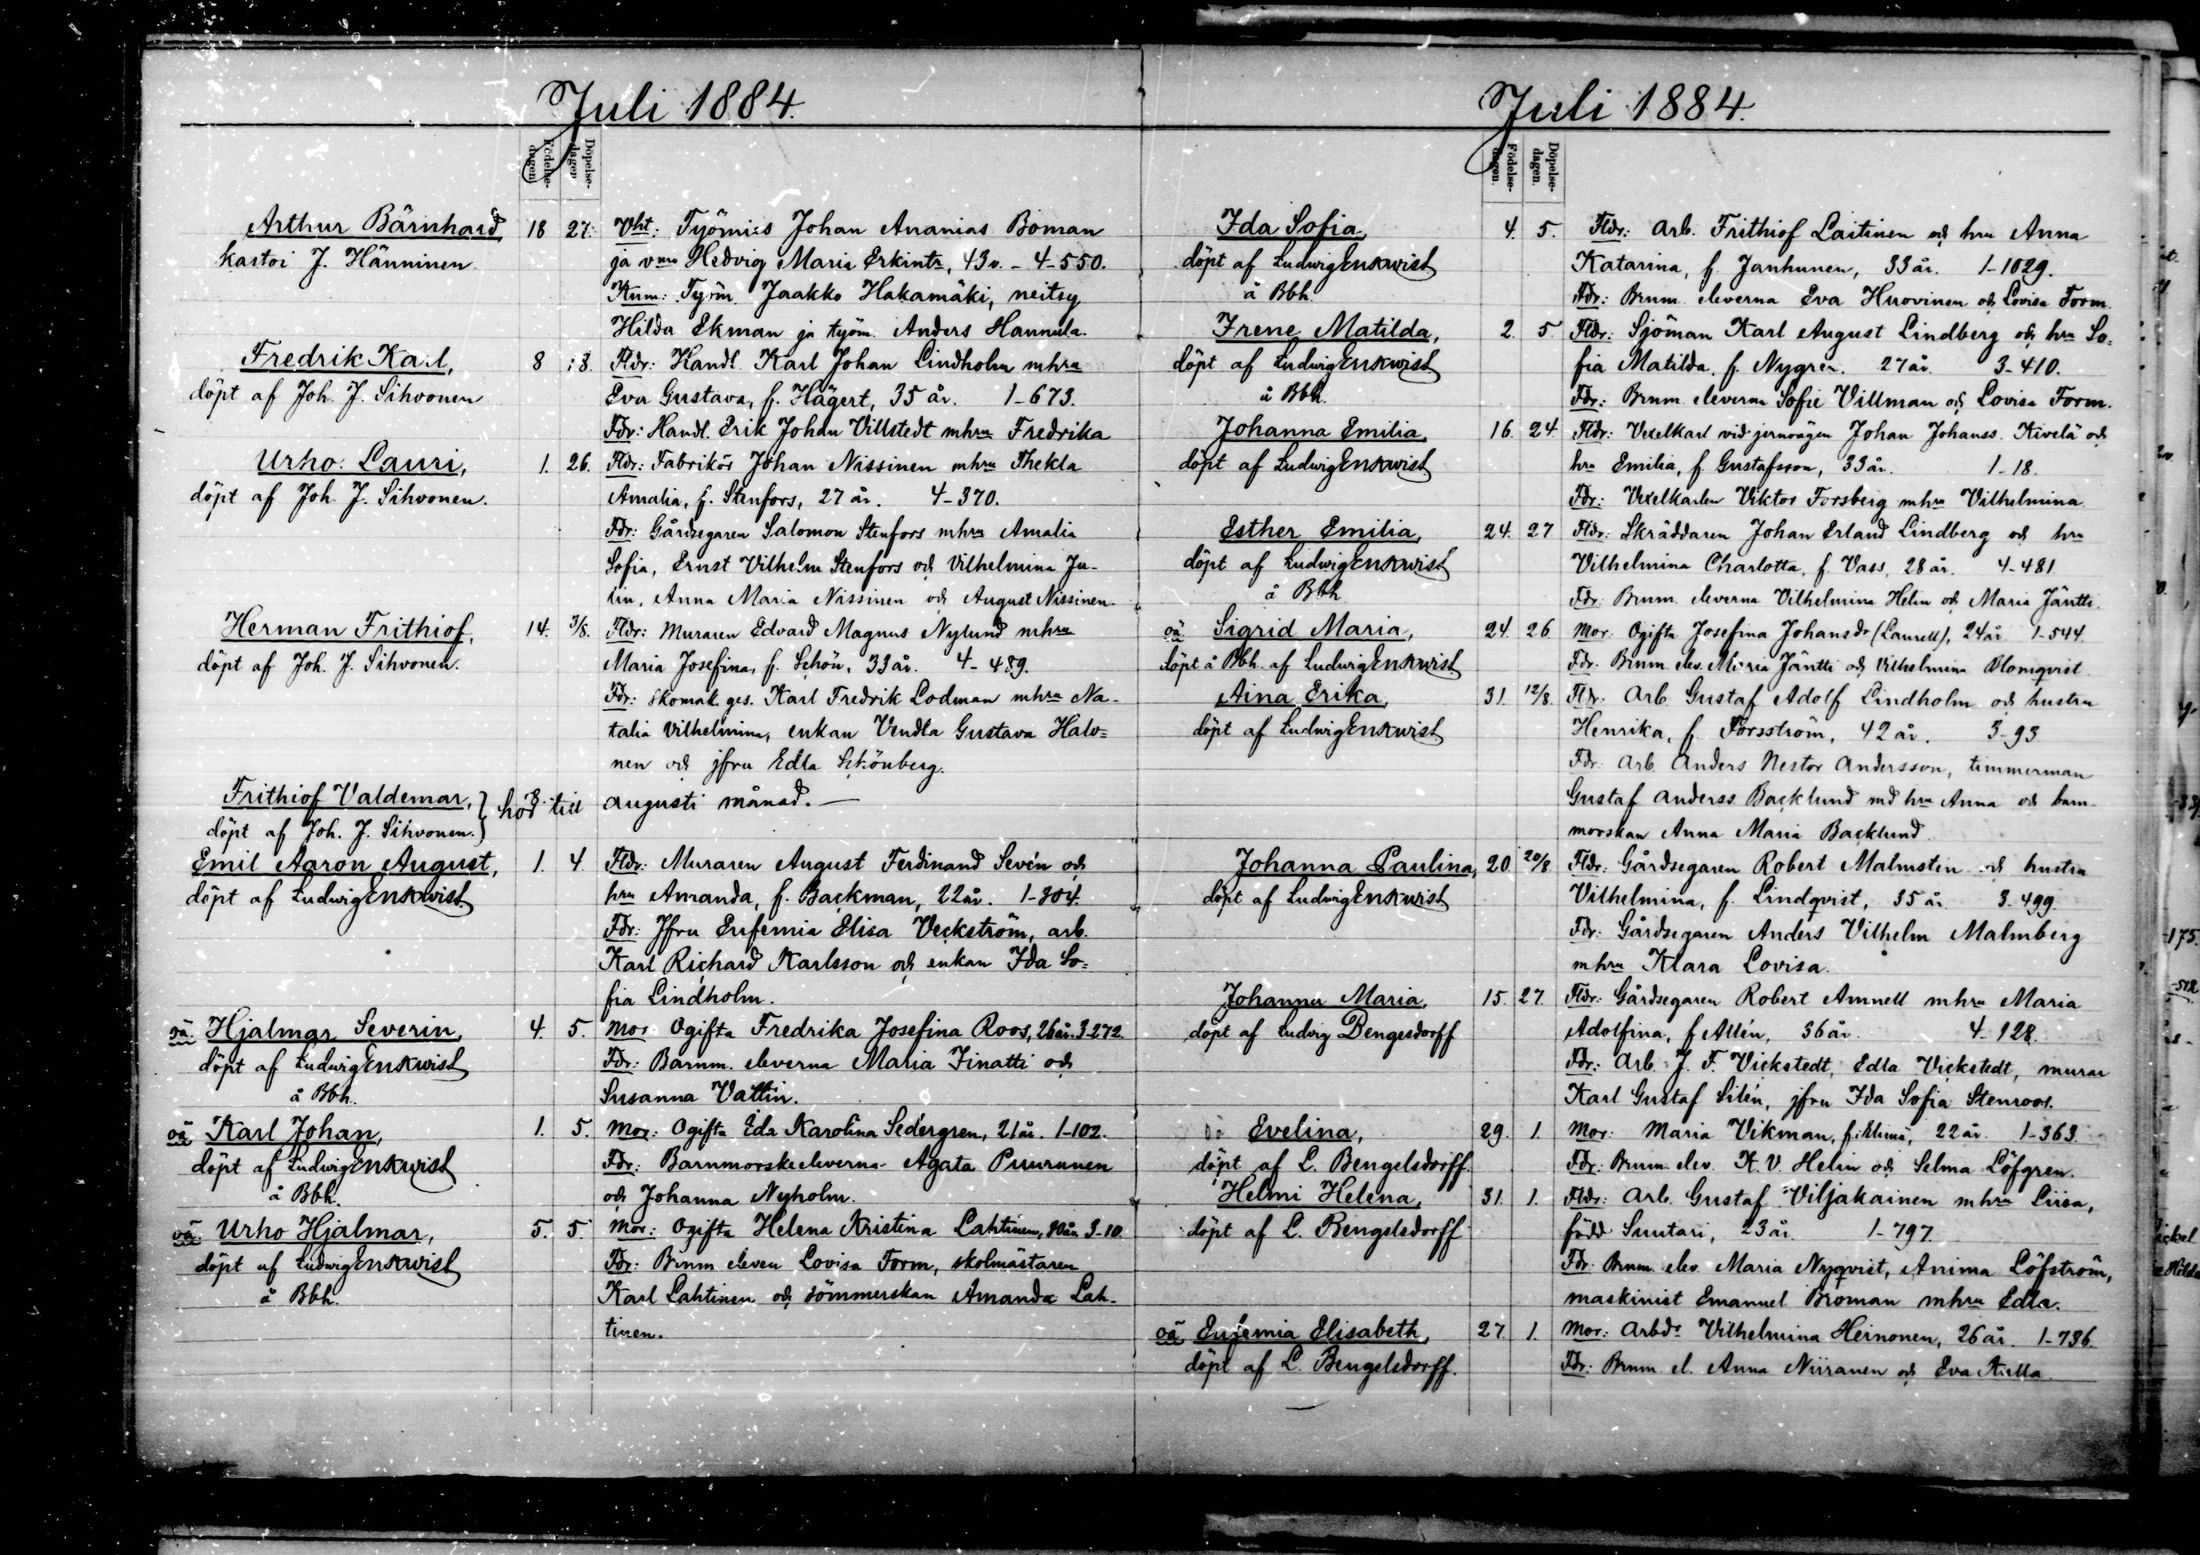 Juli 1884.
Födelse-dagen. Döpelse-dagen
Arthur Bärnhard, 18 27. Vht: Työmies Johan Ananias Boman
kastoi J. Hänninen. ja vmo Hedvig Maria Erkintr, 43 v. - 4-550.
Kum: Työm Jaakko Hakamäki, neitsy
Hilda Ekman ja työm. Anders Hannula.
Fredrik Karl, 8 18. Fldr: Handl. Karl Johan Lindholm mhra
döpt af Joh. J. Sihvonen Eva Gustava, f. Hägert, 35 år. 1-673.
Fdr: Handl. Erik Johan Villstedt mhra Fredrika
Urho Lauri, 1. 26. Fldr: Fabrikör Johan Nissinen mhra Thekla
döpt af Joh. J. Sihvonen. Amalia, f. Stenfors, 27 år. 4-370.
Fdr: Gårdsegaren Salomon Stenfors mhra Amalia
Sofia, Ernst Vilhelm Stenfors och Vilhelmina Ju-
lin, Anna Maria Nissinen och August Nissinen.
Herman Frithiof, 14. 3/8. Fldr: Muraren Edvard Magnus Nylund mhra
döpt af Joh. J. Sihvonen. Maria Josefina, f. Schön, 33 år. 4-489.
Fdr: skomak. ges. Karl Fredrik Lodman mhra Na-
talia Vilhelmina, enkan Vendla Gustava Halo=
nen och jfru Edla Schönberg.
Frithiof Valdemar, } 8. hör till augusti månad. —
döpt af Joh. J. Sihvonen.
Emil Aaron August, 1. 4. Fldr: Muraren August Ferdinand Sevén och
döpt af Ludwig Enqvist hru Amanda, f. Backman, 22 år. 1-304.
Fdr: Jfru Eufemia Elisa Veckström, arb.
Karl Richard Karlsson och enkan Ida So=
fia Lindholm.
oä Hjalmar Severin, 4. 5. Mor Ogifta Fredrika Josefina Roos, 26 år. 3-272.
döpt af Ludwig Enqvist Fdr: Barnm. eleverna Maria Jinatti och
å Bbh. Susanna Vattin.
oä Karl Johan, 1. 5. Mor: Ogifta Eda Karolina Sedergren, 21 år. 1-102.
döpt af Ludwig Enqvist Fdr: Barnmorskeeleverna Agata Puurunen
å Bbh. och Johanna Nyholm.
oä Urho Hjalmar, 5. 5. Mor: Ogifta Helena Kristina Lahtinen, 3-10
döpt af Ludwig Enqvist Fdr: Brnm eleven Lovisa Form, skolmästaren
å Bbh. Karl Lahtinen och sömmerskan Amanda Lah-
tinen.
Juli 1884.
Födelse-dagen. Döpelse-dagen.
Ida Sofia, 4. 5. Fldr: Arb. Frithiof Laitinen och hru Anna
döpt af Ludwig Enqvist Katarina, f. Janhunen, 33 år. 1-1029.
å Bbh. Fdr: Brnm. eleverna Eva Huovinen och Lovisa Form.
Irene Matilda, 2. 5. Fldr: Sjöman Karl August Lindberg och hru So=
döpt af Ludwig Enqvist fia Matilda, f. Nygren. 27 år. 3-410.
å Bbh. Fdr: Brnm. eleverna Sofie Villman och Lovisa Form.
Johanna Emilia, 16. 24. Fldr: Vexelkarl vid jernvägen Johan Johanss. Kivelä och
döpt af Ludwig Enqvist hru Emilia, f. Gustafsson, 33 år. 1-18.
Fdr: Vexelkarlen Viktor Forsberg mhra Vilhelmina
Esther Emilia, 24. 27 Fldr: Skräddaren Johan Erland Lindberg och hru
döpt af Ludwig Enqvist Vilhelmina Charlotta, f. Vass, 28 år. 4-481
å Bbh Fdr: Brnm. eleverna Vilhelmina Helin och Maria Jäntti.
oä Sigrid Maria, 24. 26 Mor: Ogifta Josefina Johansdr (Laurell), 24 år 1-544.
döpt å Bbh. af Ludwig Enqvist Fdr. Brnm. elev. Maria Jäntti och Vilhelmina Blomqvist
Aina Erika, 31. 12/8. Fldr. Arb. Gustaf Adolf Lindholm och hustru
döpt af Ludwig Enqvist Henrika, f. Forsström, 42 år. 3-93
Fdr: Arb. Anders Nestor Andersson, timmerman
Gustaf Anderss. Backlund md hru Anna och barn-
morskan Anna Maria Backlund
Johanna Paulina, 20 20/8. Fldr: Gårdsegaren Robert Malmsten och hustru
döpt af Ludwig Enqvist Vilhelmina, f. Lindqvist, 35 år 3-499.
Fdr: Gårdsegaren Anders Vilhelm Malmberg
mhru Klara Lovisa.
Johanna Maria, 15. 27. Fldr: Gårdsegaren Robert Amnell mhru Maria
döpt af Ludvig Bengesdorff Adolfina, f Allén, 36 år. 4-128.
Fdr: Arb. J. F. Vickstedt, Edla Vickstedt, murar
Karl Gustaf Silén, jfru Ida Sofia Stenroos.
Evelina, 29. 1. Mor: Maria Vikman, 22 år. 1-363
döpt af L. Bengelsdorff. Fdr: Brnm. elev. K. V. Helin och Selma Löfgren.
Helmi Helena, 31. 1. Fldr: Arb. Gustaf Viljakainen mhru Liisa,
döpt af L. Bengelsdorff född Suutari, 23 år. 1-797
Fdr: Brnm. elev. Maria Nyqvist, Anima Löfström,
maskinist Emanuel Broman mhru Edla.
oä Eufemia Elisabeth, 27. 1. Mor: Arbdr Vilhelmina Heinonen, 26 år 1-736.
döpt af L. Bengelsdorff. Fdr: Brnm. el. Anna Niiranen och Eva